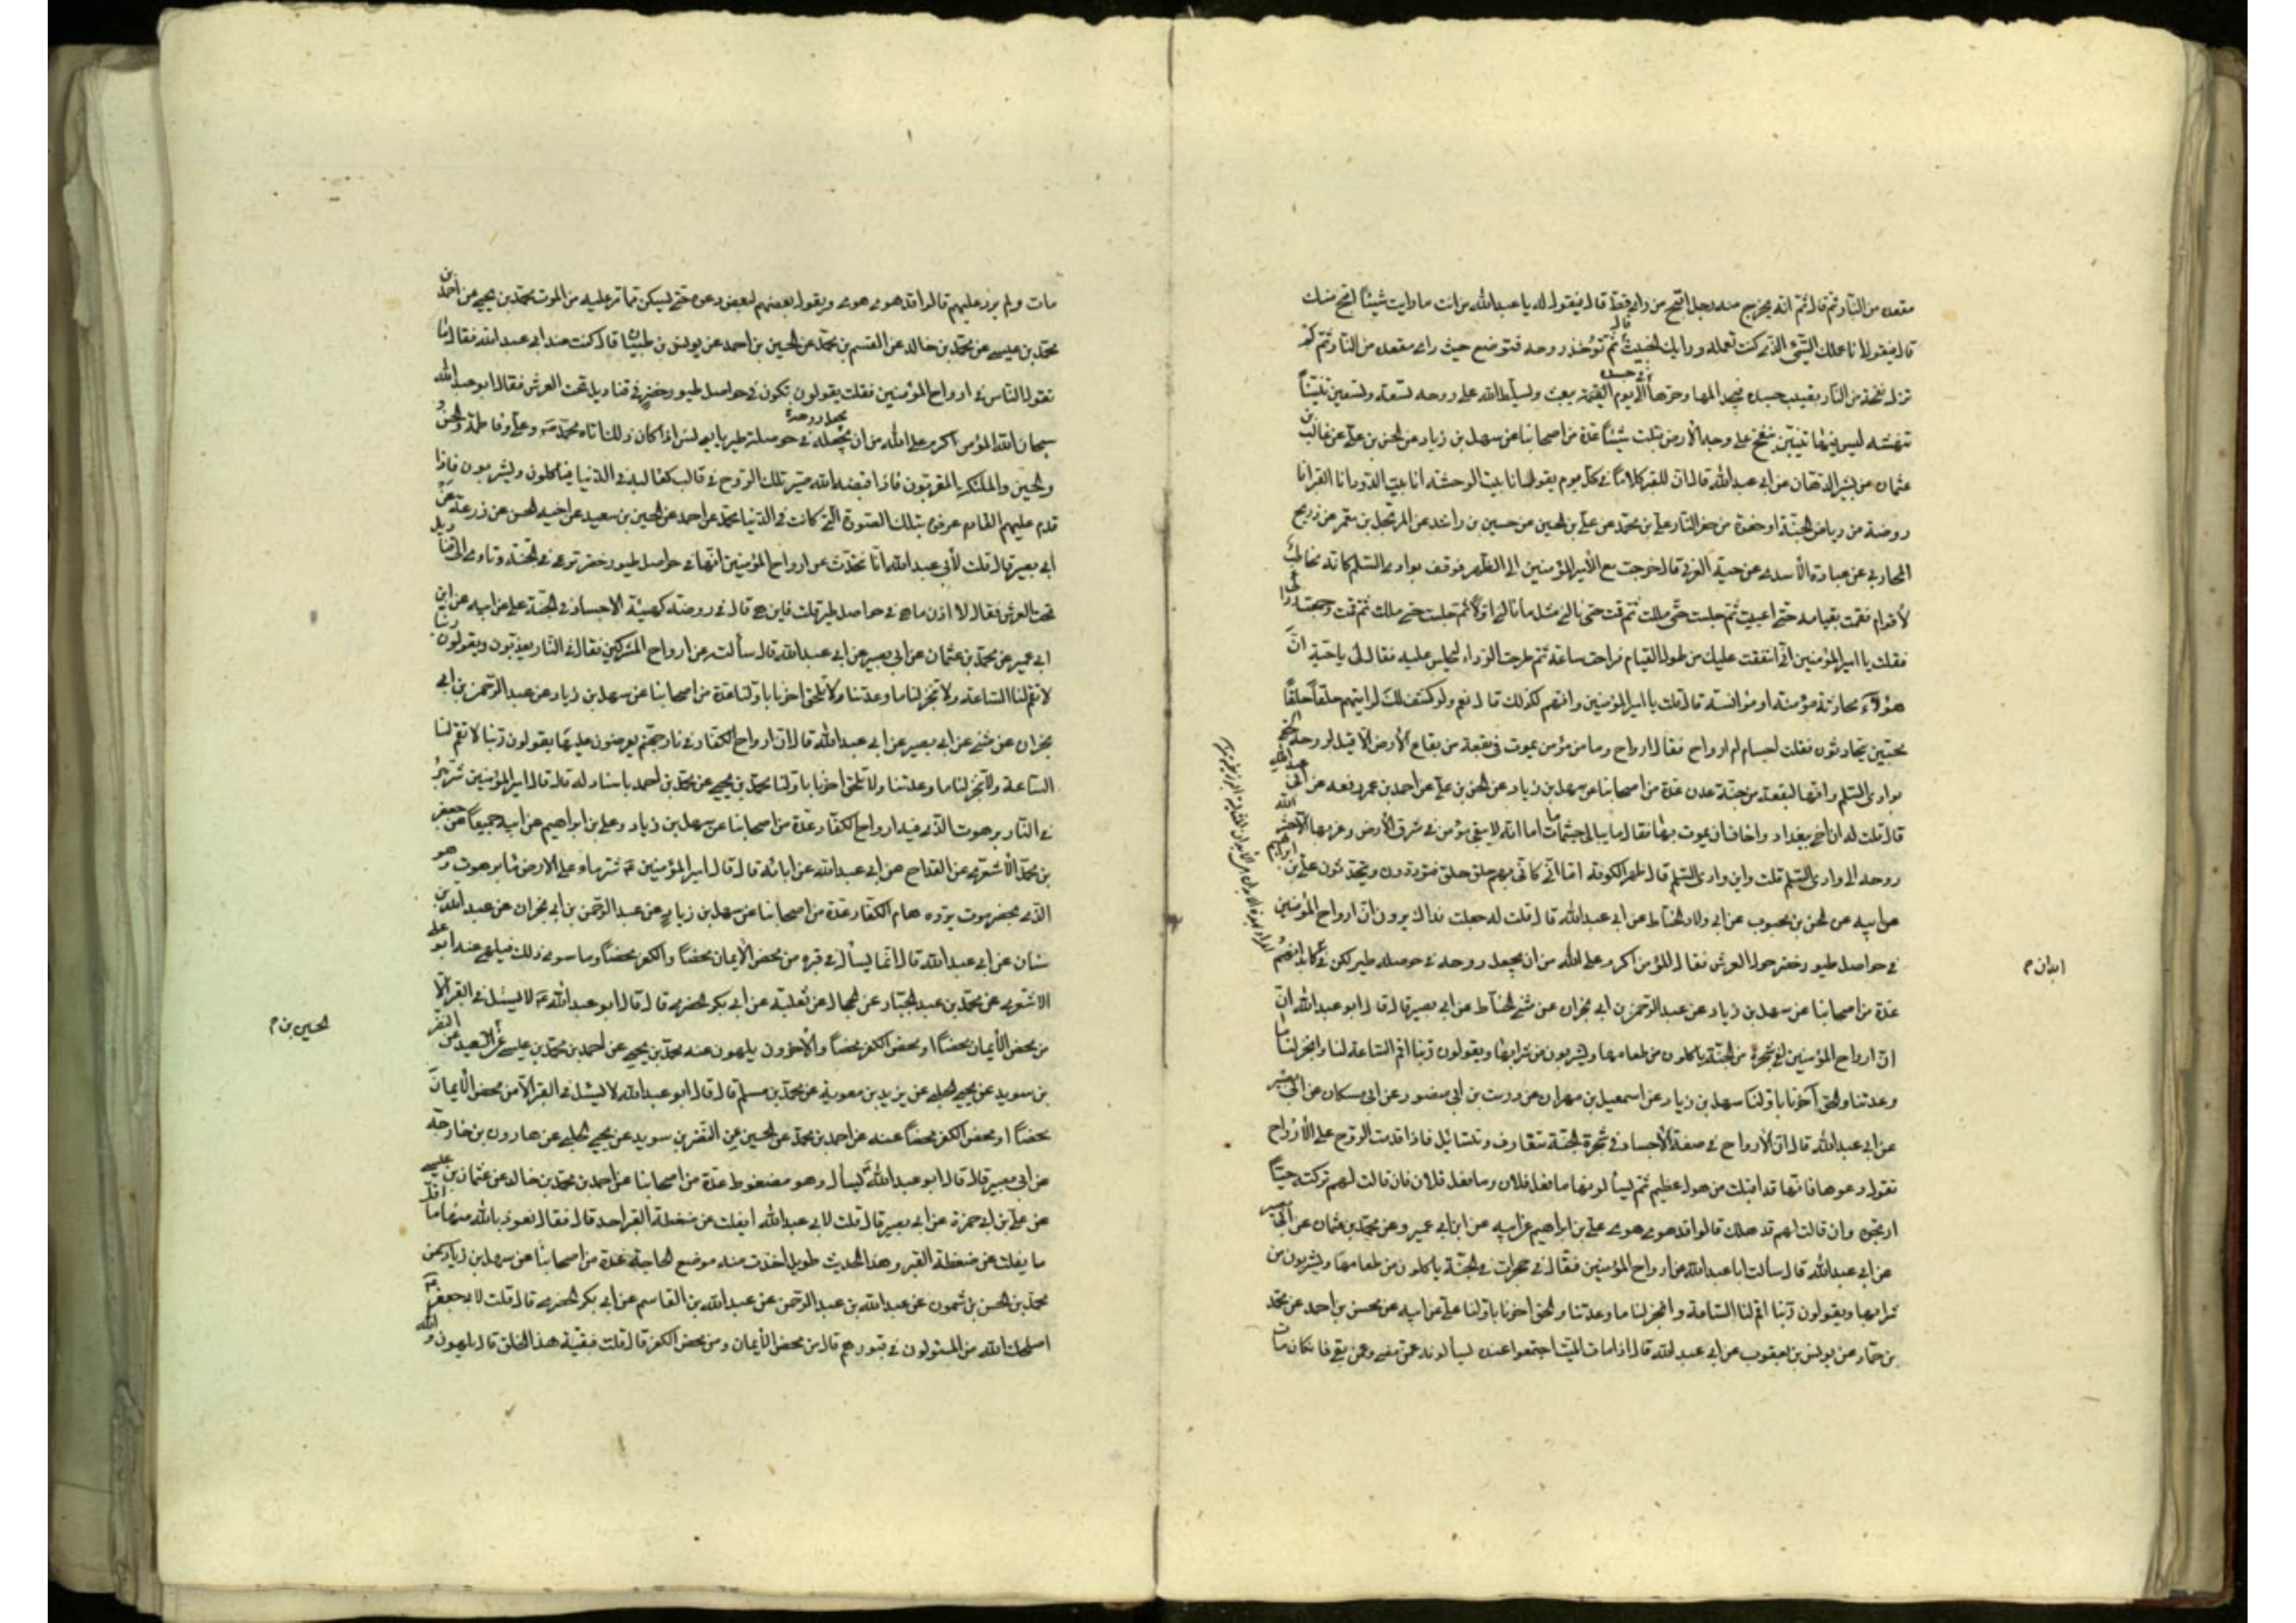 مقعده من النار ثم قال ثم انه يخرج منه رجل اقبح من رأى قط قال فيقول له يا عبد الله من انت ما رايت شيئاً اقبح منك
قال فيقول انا عملك السيّئ الذى كنت تعمله ورايك الخبيث قال ثم تؤخذ روحه فتوضع حيث راى مقعده من النار ثم لم
تزل نفخة من النار تصيب جسده فيجد المها وحرها فى جسده الى يوم القيمة يبعث ويسلط الله على روحه تسعة وتسعين تنيناً
تنهشه ليس فيها تنين ينفخ على وجه الارض فتنبت شيئاً عدة من اصحابنا عن سهل بن زياد عن الحسن بن على عن غالب بن
عثمان عن بشير الدهان عن ابى عبد الله قال ان للقبر كلاماً فى كل يوم يقول انا بيت الغربة انا بيت الوحشة انا بيت الدود انا القبر انا
روضة من رياض الجنة او حفرة من حفر النار على بن محمد عن على بن الحسن عن حسين بن راشد عن المرتجل بن معمر عن ذريح
المحاربى عن عباية الأسدى عن حبة العرنى قال خرجت مع امير المؤمنين الى الظهر فوقف بوادى السلم كانه مخاطب
لأقوام فقمت بقيامه حتى اعييت ثم جلست حتى مللت ثم قمت حتى نالنى مثل ما نالنى اولاً ثم جلست حتى مللت ثم قمت وجمعت ردائى
فقلت يا امير المؤمنين انى اشفقت عليك من طول القيام فراحة ساعة ثم طرحت الرداء ليجلس عليه فقال لى يا حبة ان
هو الا محادثة مؤمن او مؤانسته قال قلت يا امير المؤمنين وانهم لكذلك قال نعم ولو كشف لك لرايتهم حلقاً حلقاً
محتبين يتحادثون فقلت اجسام ام ارواح فقال ارواح وما من مؤمن يموت فى بقعة من بقاع الأرض الا قيل لروحه الحقى
بوادى السلم وانها لبقعة من جنة عدن عدة من اصحابنا عن سهل بن زياد عن الحسن بن على عن احمد بن عمر رفعه عن ابى عبد الله
قال قلت له ان اخى ببغداد واخاف ان يموت بها فقال ما يبالى حيثما مات اما انه لا يبقى مؤمن فى شرق الأرض وغربها الا حشر الله
روحه الى وادى السلم قلت واين وادى السلم قال ظهر الكوفة اما انى كانى بهم حلق حلق قعود يتحدثون على بن ابراهيم
عن ابيه عن الحسن بن محبوب عن ابى ولاد الحناط عن ابى عبد الله قال قلت له جعلت فداك يروون ان ارواح المؤمنين
فى حواصل طيور خضر حول العرش فقال لا المؤمن اكرم على الله من ان يجعل روحه فى حوصلة طير لكن فى كابدانهم
ابدان م
عدة من اصحابنا عن سهل بن زياد عن عبد الرحمن بن ابى نجران عن مثنى الحناط عن ابى بصير قال قال ابو عبد الله ان
ان ارواح المؤمنين لفى شجرة من الجنة ياكلون من طعامها ويشربون من شرابها ويقولون ربنا اقم الساعة لنا وانجز لنا ما
وعدتنا والحق آخرنا باولنا سهل بن زياد عن اسمعيل بن مهران عن درست بن ابى منصور عن ابن مسكان عن ابى بصير
عن ابى عبد الله قال ان الأرواح فى صفة الأجساد فى شجرة الجنة تتعارف وتتسائل فاذا قدمت الروح على الأرواح
تقول دعوها فانها قد افلتت من هول عظيم ثم يسألونها ما فعل فلان وما فعل فلان فان قالت لهم تركته حياً
ارتجوه وان قالت لهم قد هلك قالوا قد هوى هوى على بن ابراهيم عن ابيه عن ابن ابى عمير وعن محمد بن عثمان عن ابى بصير
عن ابى عبد الله قال سالت ابا عبد الله عن ارواح المؤمنين فقال فى حجرات فى الجنة ياكلون من طعامها ويشربون من
شرابها ويقولون ربنا اقم لنا الساعة وانجز لنا ما وعدتنا والحق اخرنا باولنا على عن ابيه عن محسن بن احمد عن محمد
بن حماد عن يونس بن يعقوب عن ابى عبد الله قال اذا مات الميت اجتمعوا عنده يسألونه عمن مضى وعمن بقى فان كان مات
مات ولم يرد عليهم قالوا قد هوى هوى ويقول بعضهم لبعض دعوه حتى يسكن مما مر عليه من الموت محمد بن يحيى عن احمد بن
محمد بن عيسى عن محمد بن خالد عن القسم بن محمد عن الحسين بن احمد عن يونس بن ظبيان قال كنت عند ابى عبد الله فقال ما
تقول الناس فى ارواح المؤمنين فقلت يقولون تكون فى حواصل طيور خضر فى قناديل تحت العرش فقال ابو عبد الله
سبحان الله المؤمن اكرم على الله من ان يجعل روحه فى حوصلة طير يا يونس اذا كان ذلك اتاه محمد ص وعلى وفاطمة والحسن
والحسين والملئكة المقربون فاذا قبضه الله صير تلك الروح فى قالب كقالبه فى الدنيا فيأكلون ويشربون فاذا
قدم عليهم القادم عرفوه بتلك الصورة التى كانت فى الدنيا محمد عن احمد عن الحسين بن سعيد عن اخيه الحسن عن زرعة عن
ابى بصير قال قلت لأبى عبد الله انا نتحدث عن ارواح المؤمنين انها فى حواصل طيور خضر ترعى فى الجنة وتاوى الى قناديل
تحت العرش فقال لا اذن ما هى فى حواصل طير قلت فاين هى قال فى روضة كهيئة الاجساد فى الجنة على عن ابيه عن ابن
ابى عمير عن محمد بن عثمان عن ابى بصير عن ابى عبد الله قال سألت عن ارواح المشركين فقال فى النار يعذبون ويقولون ربنا
لا تقم لنا الساعة ولا تنجز لنا ما وعدتنا ولا تلحق اخرنا باولنا عدة من اصحابنا عن سهل بن زياد عن عبد الرحمن بن ابى
نجران عن مثنى عن ابى بصير عن ابى عبد الله قال ان ارواح الكفار فى نار جهنم يعرضون عليها يقولون ربنا لا تقم لنا
الساعة ولا تنجز لنا ما وعدتنا ولا تلحق اخرنا باولنا محمد بن يحيى عن محمد بن احمد باسناد له قال قال امير المؤمنين شر بئر
فى النار برهوت الذى فيه ارواح الكفار عدة من اصحابنا عن سهل بن زياد وعلى بن ابراهيم عن ابيه جميعاً عن جعفر
بن محمد الأشعرى عن القداح عن ابى عبد الله عن ابائه قال قال امير المؤمنين ع شر ماء على الارض ماء برهوت وهو
الذى بحضرموت يرده هام الكفار عدة من اصحابنا عن سهل بن زياد عن عبد الرحمن بن ابى نجران عن عبد الله بن
سنان عن ابى عبد الله قال انما يسأل فى قبره من محض الأيمان محضاً والكفر محضاً وما سوى ذلك فيلهى عنه ابو على
الاشعرى عن محمد بن عبد الجبار عن الحجال عن ثعلبة عن ابى بكر الحضرمى قال قال ابو عبد الله ع لا يسئل فى القبر الا
من محض الأيمان محضاً او محض الكفر محضاً والأخرون يلهون عنه محمد بن يحيى عن احمد بن محمد بن عيسى عن سعيد عن النضر
الحسين بن م
بن سويد عن يحيى الحلبى عن بريد بن معوية عن محمد بن مسلم قال قال ابو عبد الله لا يسئل فى القبر الا من محض الأيمان
محضاً او محض الكفر محضاً عنه عن احمد بن محمد عن الحسين عن النضر بن سويد عن يحيى الحلبى عن هارون بن خارجة
عن ابى بصير قال قال ابو عبد الله ع يسأل وهو مضغوط عدة من اصحابنا عن احمد بن محمد بن خالد عن عثمان بن عيسى
عن على بن ابى حمزة عن ابى بصير قال قلت لابى عبد الله ايفلت من ضغطة القبر احد قال فقال نعوذ بالله منها ما اقل
ما يفلت من ضغطة القبر وهذا الحديث طويل اخذت منه موضع الحاجة عدة من اصحابنا عن سهل بن زياد عن
محمد بن الحسن بن شمون عن عبد الله بن عبد الرحمن عن عبد الله بن القاسم عن ابى بكر الحضرمى قال قلت لابى جعفر ع
اصلحك الله من المسئولون فى قبورهم قال من محض الأيمان ومن محض الكفر قال قلت فبقية هذا الخلق قال يلهون والله